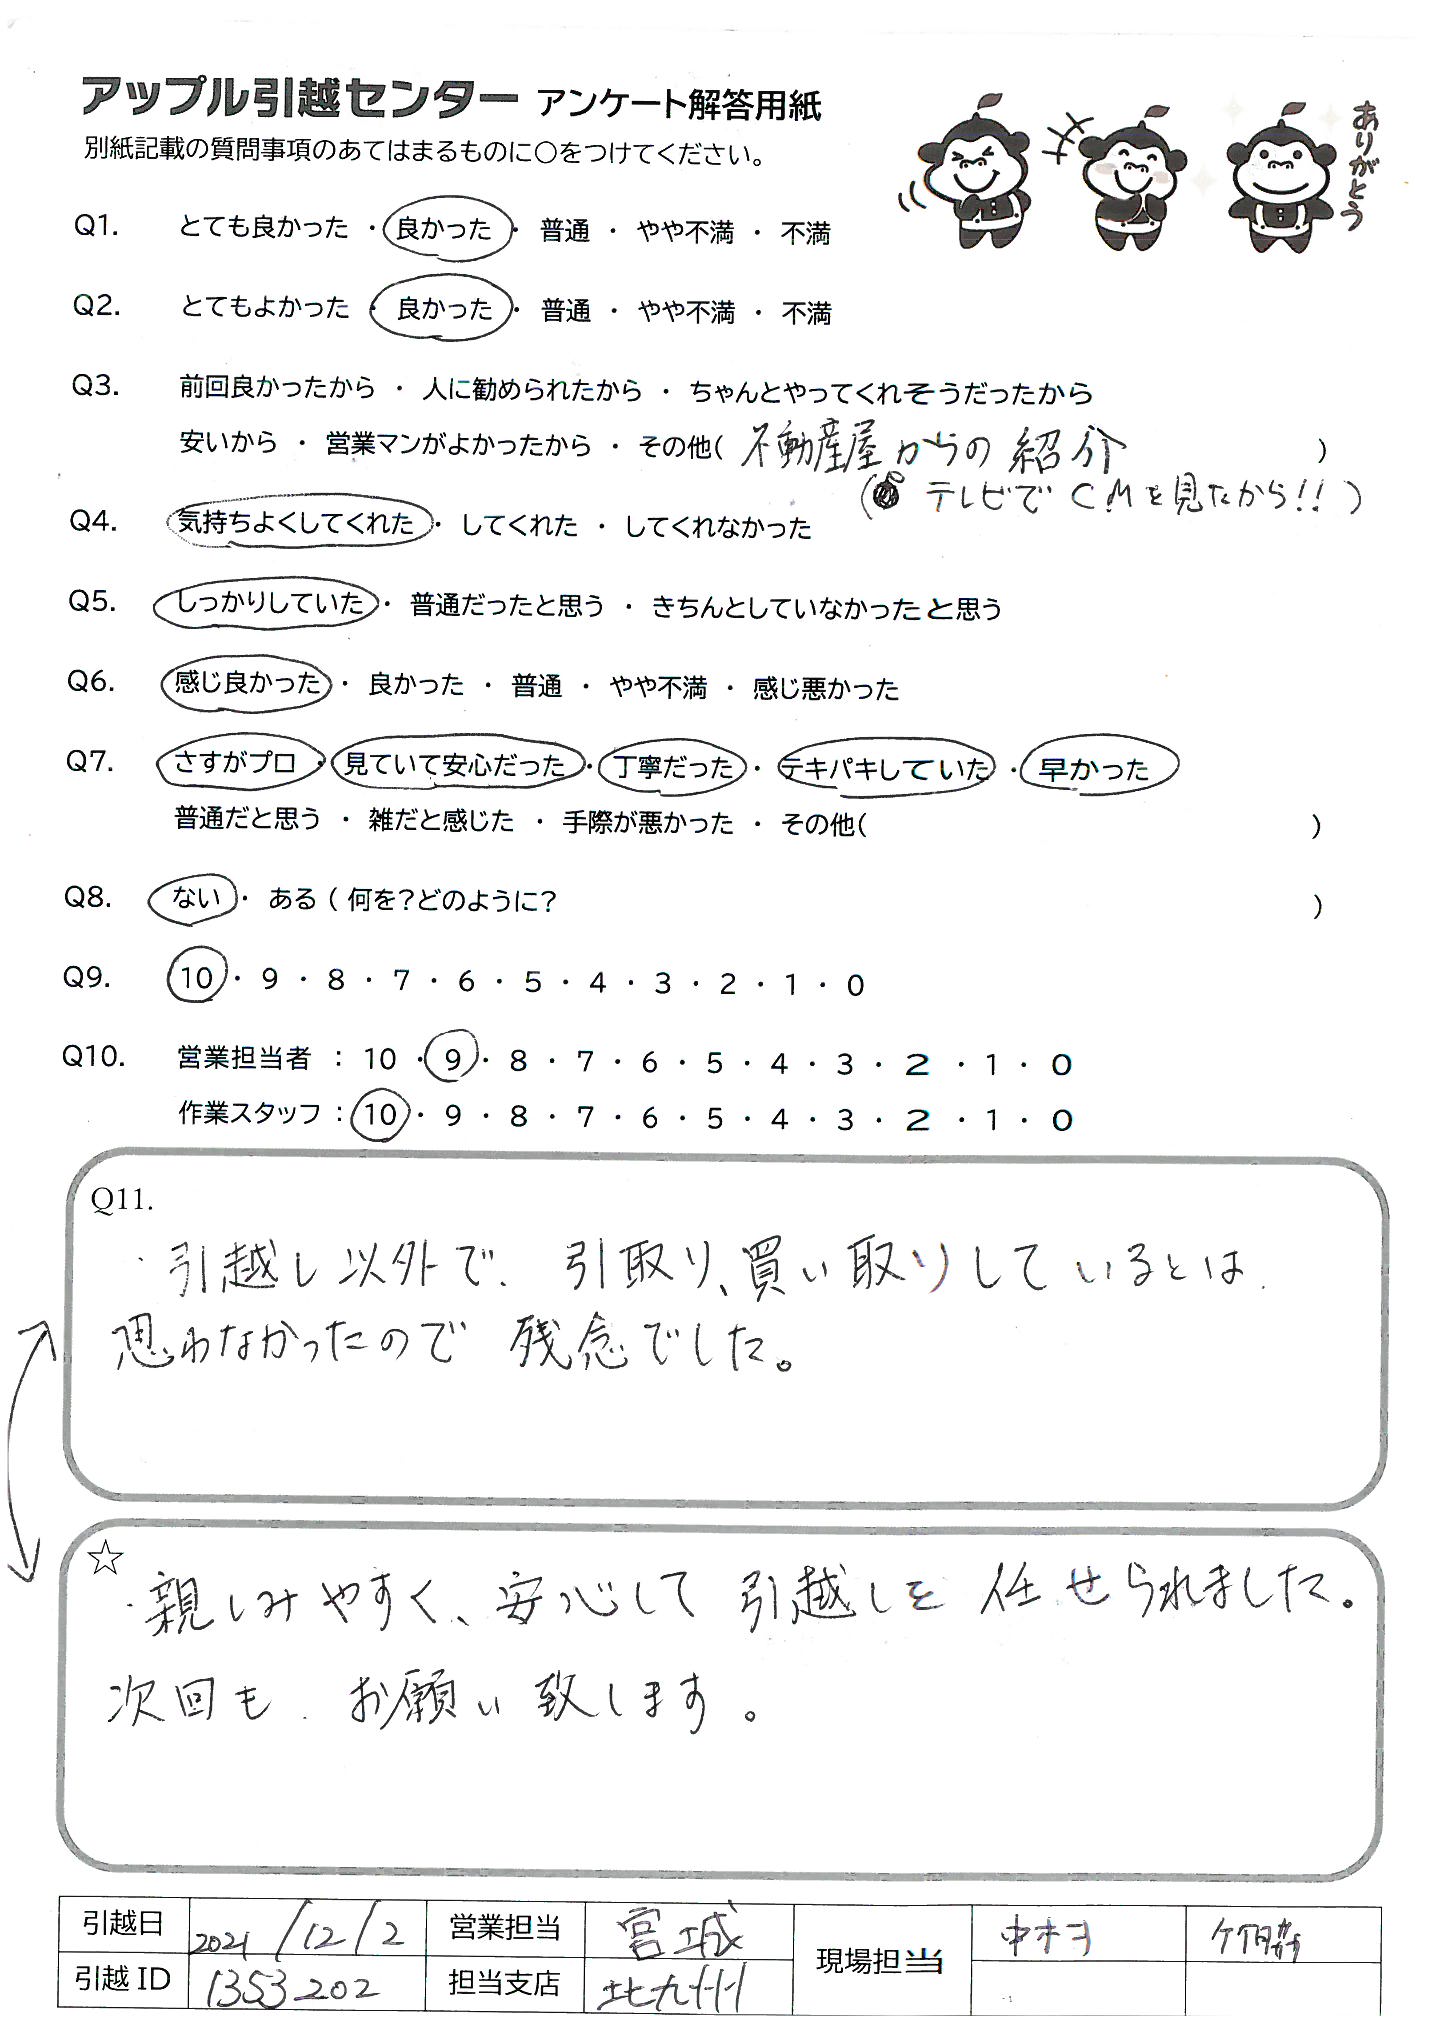 アップル引越センター アンケート解答用紙
別紙記載の質問事項のあてはまるものに○をつけてください。
ありがとう
Q1. とても良かった ・ 良かった ・ 普通 ・ やや不満 ・ 不満
Q2. とてもよかった ・ 良かった ・ 普通 ・ やや不満 ・ 不満
Q3. 前回良かったから ・ 人に勧められたから ・ ちゃんとやってくれそうだったから
安いから ・ 営業マンがよかったから ・ その他( 不動産屋からの紹介 )
( テレビでCMを見たから!! )
Q4. 気持ちよくしてくれた ・ してくれた ・ してくれなかった
Q5. しっかりしていた ・ 普通だったと思う ・ きちんとしていなかったと思う
Q6. 感じ良かった ・ 良かった ・ 普通 ・ やや不満 ・ 感じ悪かった
Q7. さすがプロ ・ 見ていて安心だった ・ 丁寧だった ・ テキパキしていた ・ 早かった
普通だと思う ・ 雑だと感じた ・ 手際が悪かった ・ その他( )
Q8. ない ・ ある ( 何を?どのように? )
Q9. 10 ・ 9 ・ 8 ・ 7 ・ 6 ・ 5 ・ 4 ・ 3 ・ 2 ・ 1 ・ 0
Q10. 営業担当者 : 10 ・ 9 ・ 8 ・ 7 ・ 6 ・ 5 ・ 4 ・ 3 ・ 2 ・ 1 ・ 0
作業スタッフ : 10 ・ 9 ・ 8 ・ 7 ・ 6 ・ 5 ・ 4 ・ 3 ・ 2 ・ 1 ・ 0
Q11.
・引越し以外で、引取り、買い取りしているとは
思わなかったので 残念でした。
☆
・親しみやすく、安心して 引越しを 任せられました。
次回も、お願い致します。
引越日 2021/12/2 営業担当 宮城 現場担当
引越ID 1353202 担当支店 北九州